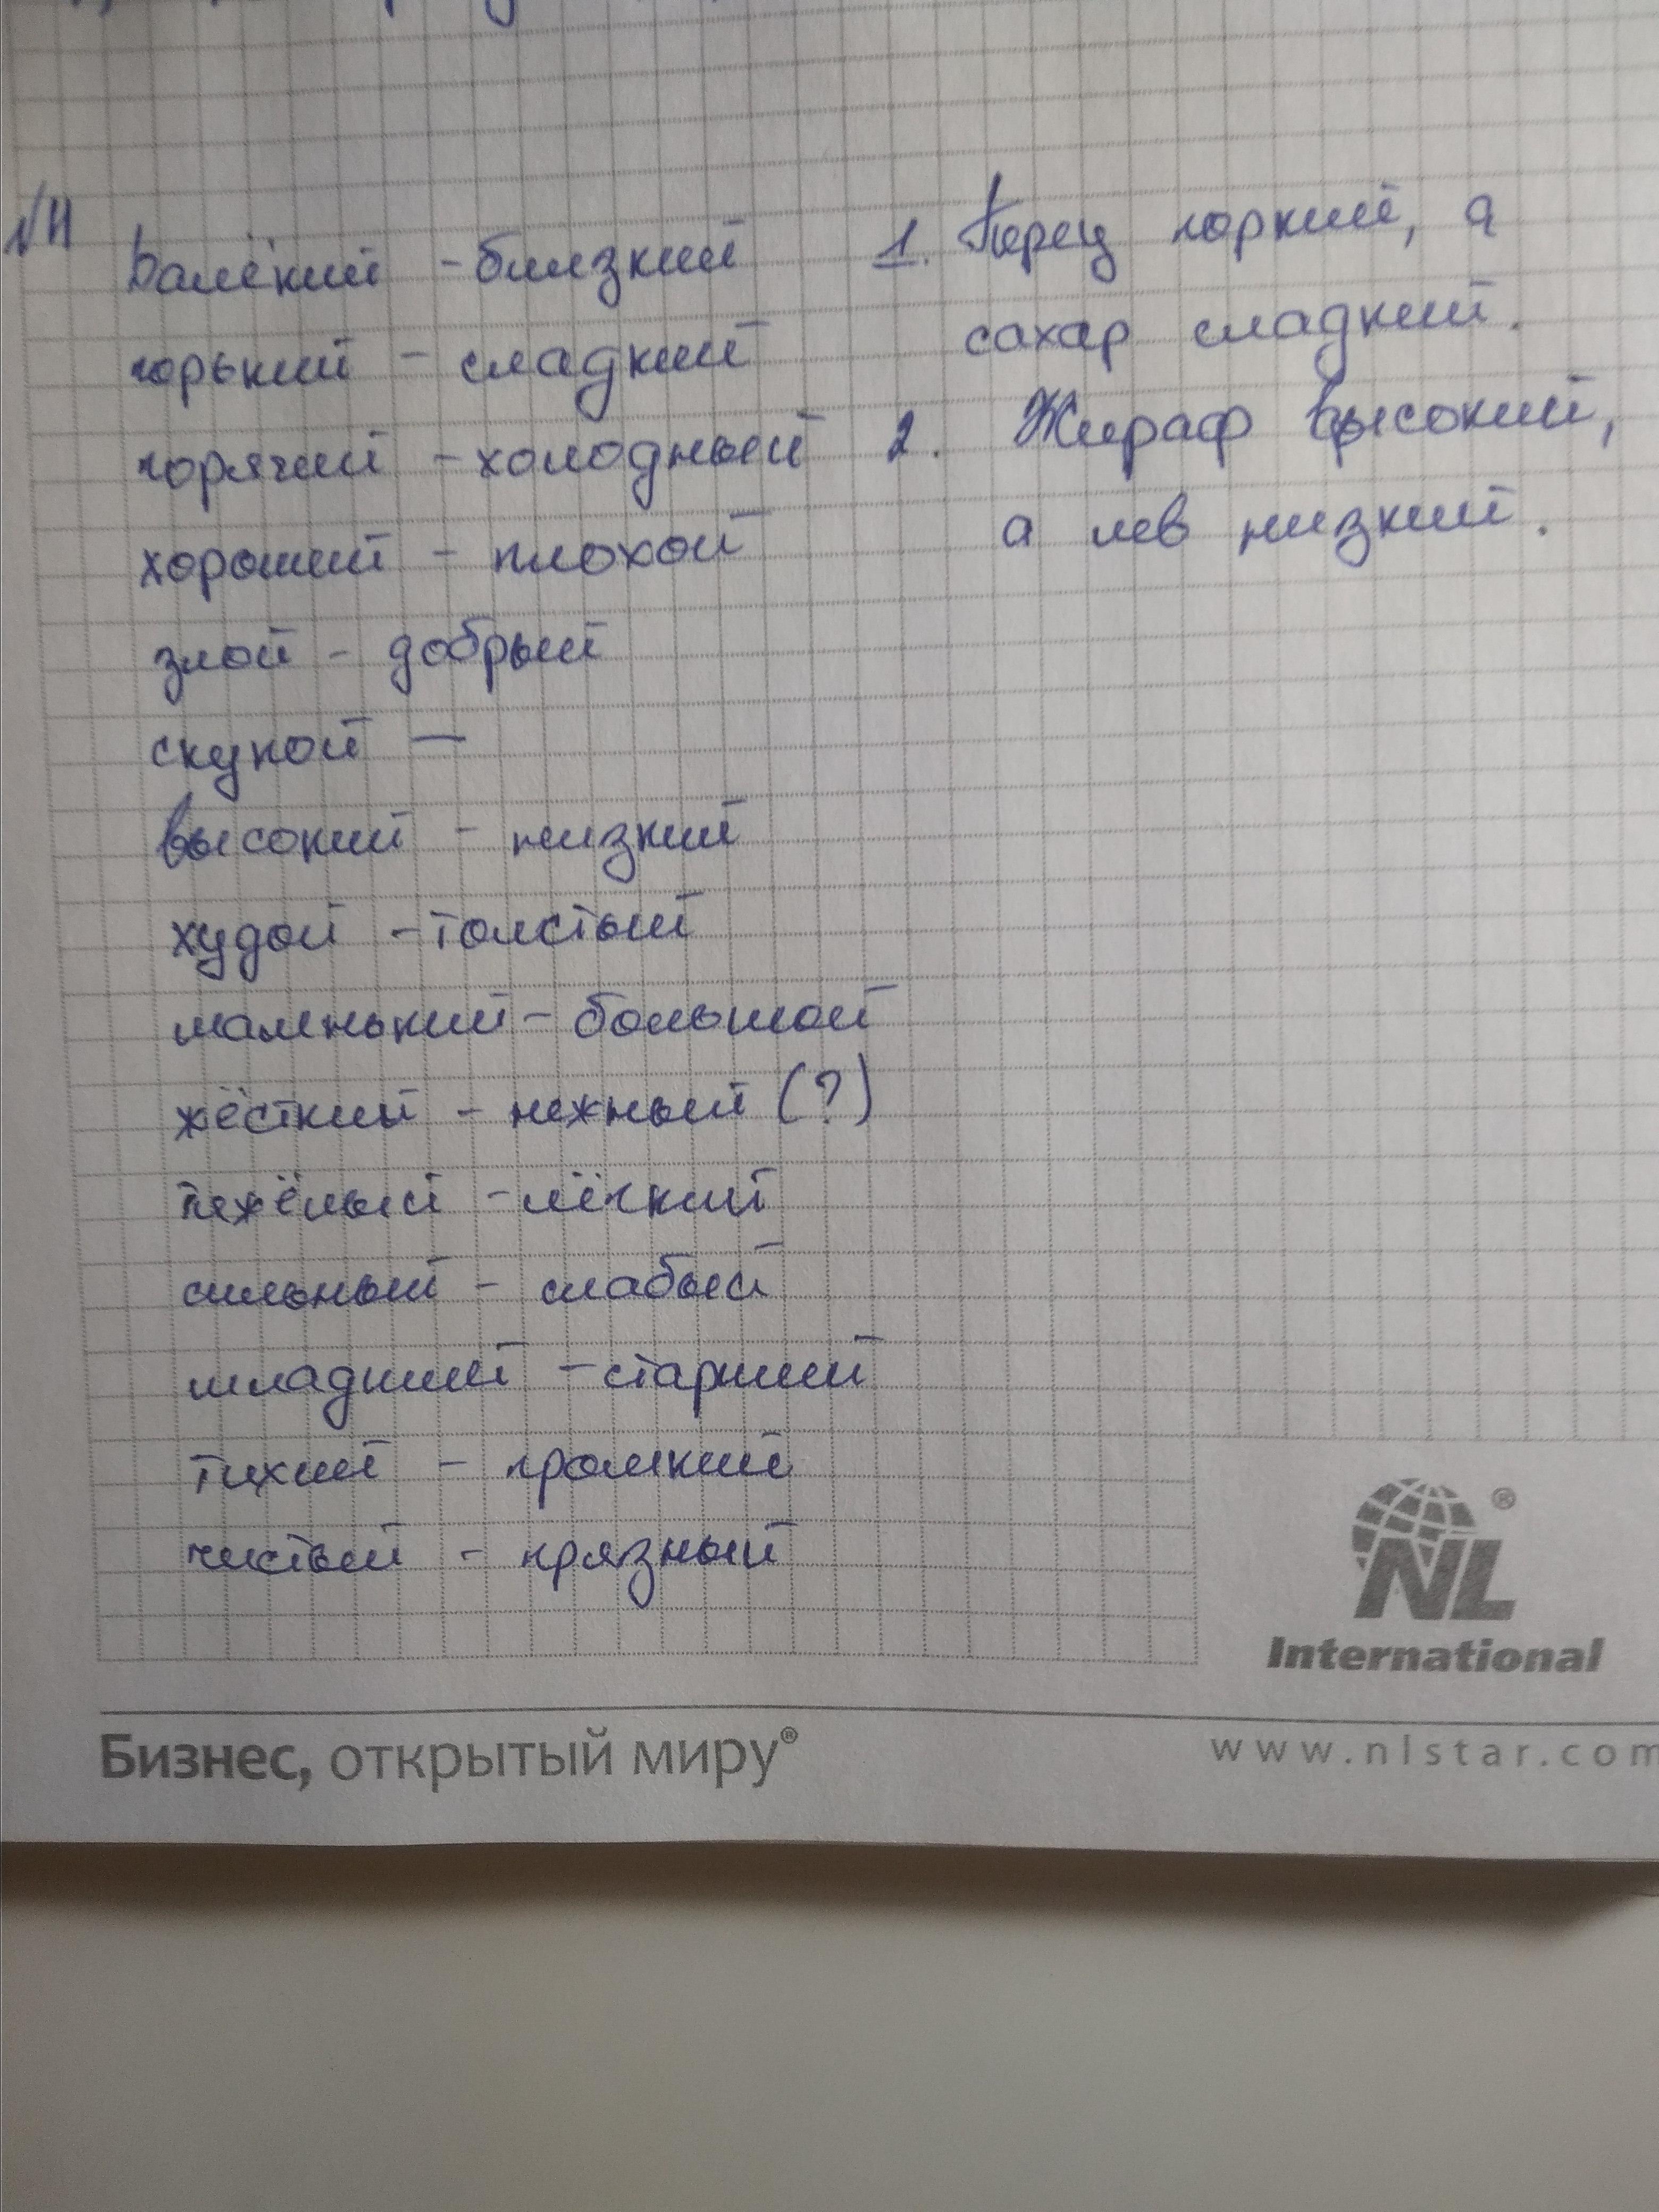 №4
далёкий - близкий
горький - сладкий
горячий - холодный
хороший - плохой
злой - добрый
скупой —
высокий - низкий
худой - толстый
маленький - большой
жёсткий - нежный (?)
тяжёлый - лёгкий
сильный - слабый
младший - старший
тихий - громкий
чистый - грязный
1. Перец горкий, а
сахар сладкий.
2. Жираф высокий,
а лев низкий.
NL ®
International
Бизнес, открытый миру®
www.nlstar.com